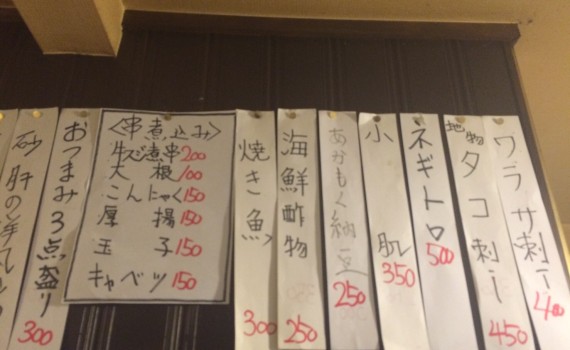 ワラサ刺し 400
地物タコ刺し 450
ネギトロ 500
小肌 350
あかもく納豆 250
海鮮酢物 250
焼き魚 300
〈串煮込み〉
牛スジ煮串 200
大根 100
こんにゃく 150
厚揚 150
玉子 150
キャベツ 150
おつまみ3点盛り 300
砂肝の洋風